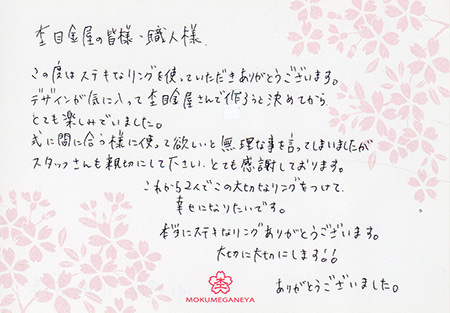 杢目金屋の皆様・職人様.
この度はステキなリングを使っていただきありがとうございます。
デザインが気に入って杢目金屋さんで作ろうと決めてから
とても楽しみでいました。
式に間に合う様に使って欲しいと無理な事を言ってしまいましたが
スタッフさんも親切にして下さい、とても感謝しております。
これから2人でこの大切なリングをつけて、
幸せになりたいです。
本当にステキなリングありがとうございます。
大切に大切にします!!
ありがとうございました。
MOKUMEGANEYA